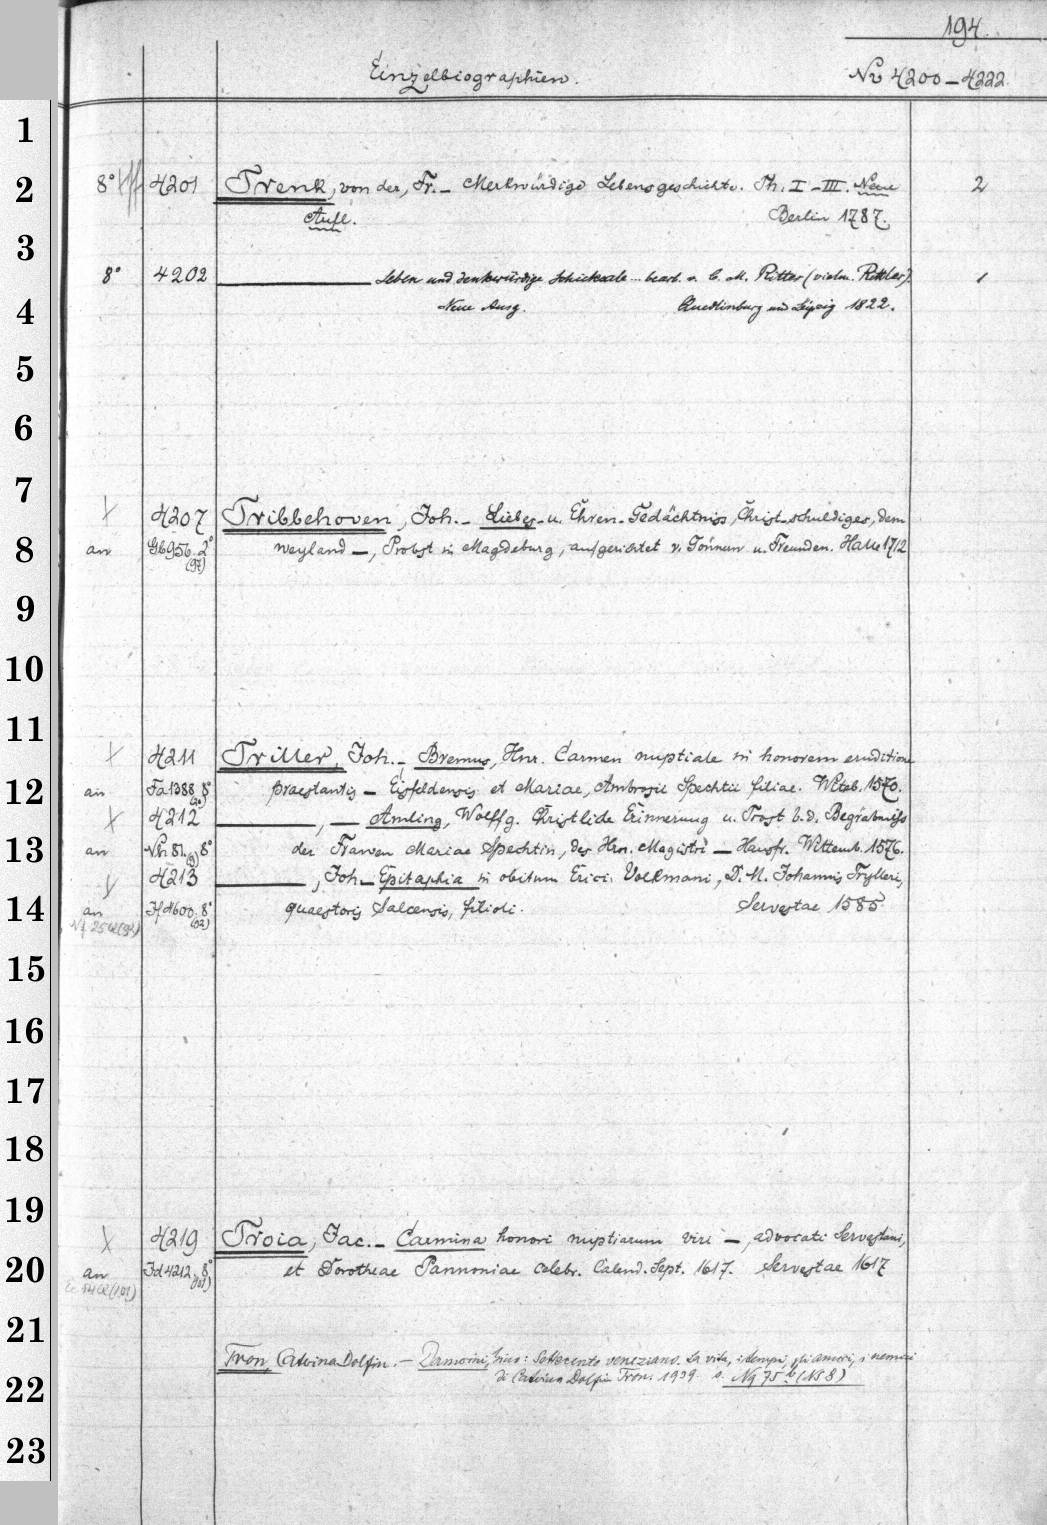 194.
Einzelbiographien.
No 4200–4222.
1
2
3
4
5
6
7
8
9
10
11
12
13
14
15
16
17
18
19
20
21
22
23
8° 4201 Trenk, von der, Fr. – Merkwürdige Lebensgeschichte. Th. I–III. Neue 2
Aufl. Berlin 1787.
8° 4202 ——— Leben und denkwürdige Schicksale ... bearb. v. C. M. Ritter (vielm. Rittler). 1
Neue Ausg. Quedlinburg und Leipzig 1822.
4207 Tribbehoven, Joh. – Liebes- u. Ehren-Gedächtniss, Christ-schuldiges, dem
an Gb956.2° (97) weyland –, Probst in Magdeburg, aufgerichtet v. Gönnern u. Freunden. Halle 1712
4211 Triller, Joh. – Bremus, Hnr. Carmen nuptiale in honorem eruditione
an Fa1388 8° praestantis – Eisfeldensis et Mariae, Ambrosii Spechtii filiae. Witeb. 1570.
4212 ———, — Amling, Wolffg. Christlide Erinnerung u. Trost b. d. Begräbniss
an 8° der Frawen Mariae Spechtin, des Hrn. Magistri – Hausfr. Wittemb. 1576.
4213 ———, Joh. – Epitaphia in obitum Erici Volkmani, D. M. Johannis Trylleri,
an 8° (92) quaestoris Salcensis, filioli. Servestae 1585
4219 Troia, Jac. – Carmina honori nuptiarum viri –, advocati Servestani,
an Id4212 8° (101) et Dorotheae Pannoniae celebr. Calend. Sept. 1617. Servestae 1617
Tron, Caterina Dolfin. – Damerini, Gino: Settecento veneziano. La vita, i tempi, gli amori, i nemici
di Caterina Dolfin Tron. 1939. s. Ng 75 b (NS 8)